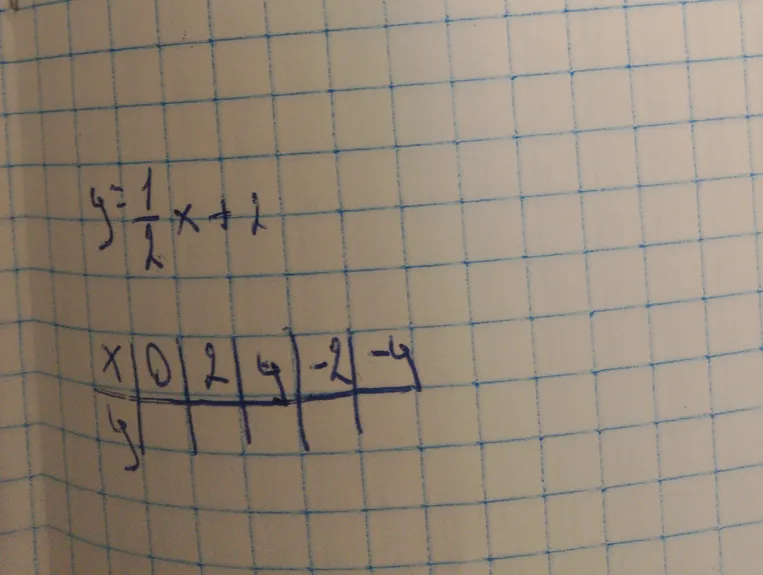 y=1/2 x+2
x 0 2 4 -2 -4
y